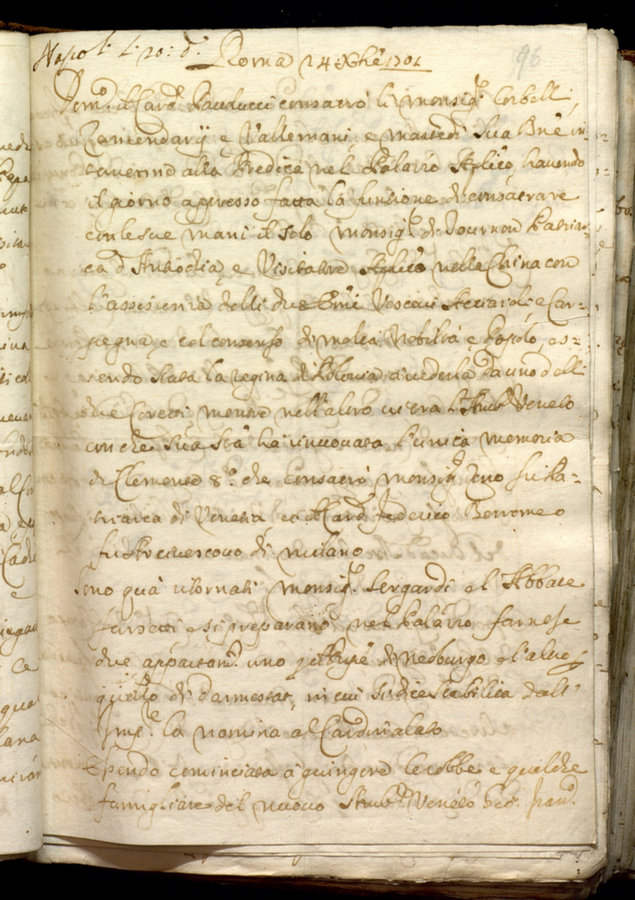 Napol. l: 20: d.
Roma 24 Xbre 1701
96
Dom.ª il Card. Paulucci consacrò li monsig.ri Corbelli,
Zamendarij e Vallemani, e martedì Sua Bne in-
tervenne alla Predica nel Palazzo Aplico, havendo
il giorno appresso fatta la funzione di consacrare
con le sue mani il solo monsig.r di Tournon Patriar-
ca d'Antiochia, e Visitatore Aplico nella China con
l'assistenza delli due Emi Vescovi Acciaioli e Car-
pegna, e col consenso di molta Nobiltà e Popolo, es-
sendo stata la regina di Polonia a vederla da uno delli
due Coretti mentre nell'altro vi era l'Amb.r Veneto
con che Sua Stà ha rinnovata l'unica memoria
di Clemente 8.º che consacrò monsig.r Zeno fu Pa-
triarca di Venetia et il Card. Federico Borromeo
fu Arcivescovo di milano
Sono quà ritornati Monsig.r Sergardi e l'Abbate
Farsetti e si preparano nel Palazzo farnese
due appartam.ti uno p. di Neoburgo e l'altro p.
quello di Darmestat, in cui si dice stabilita dall'
Imp.e la nomina al Cardinalato
Essendo cominciata à giungere le robbe e qualche
famigliare del nuovo Amb.r Veneto